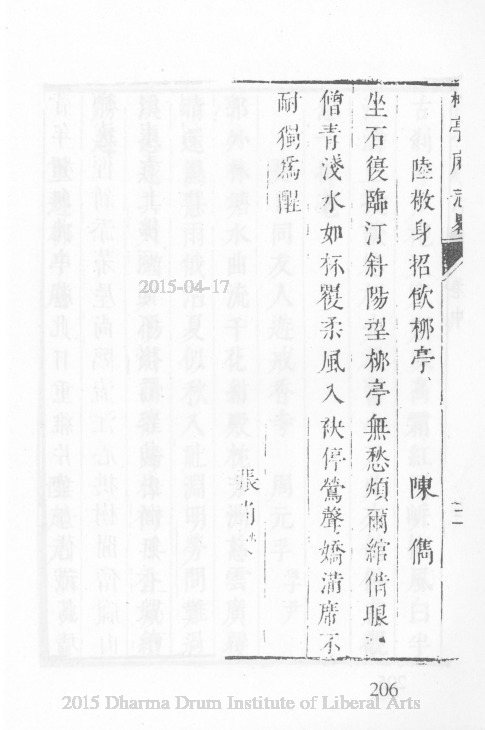 柳亭庵志畧
二
陸敬身招飲柳亭 陳儁
坐石復臨汀斜陽望柳亭無愁煩爾綰借眼
僧青淺水如杯覆柔風入袂停鶯聲嬌滿席不
耐獨爲醒
張
2015-04-17
206
2015 Dharma Drum Institute of Liberal Arts